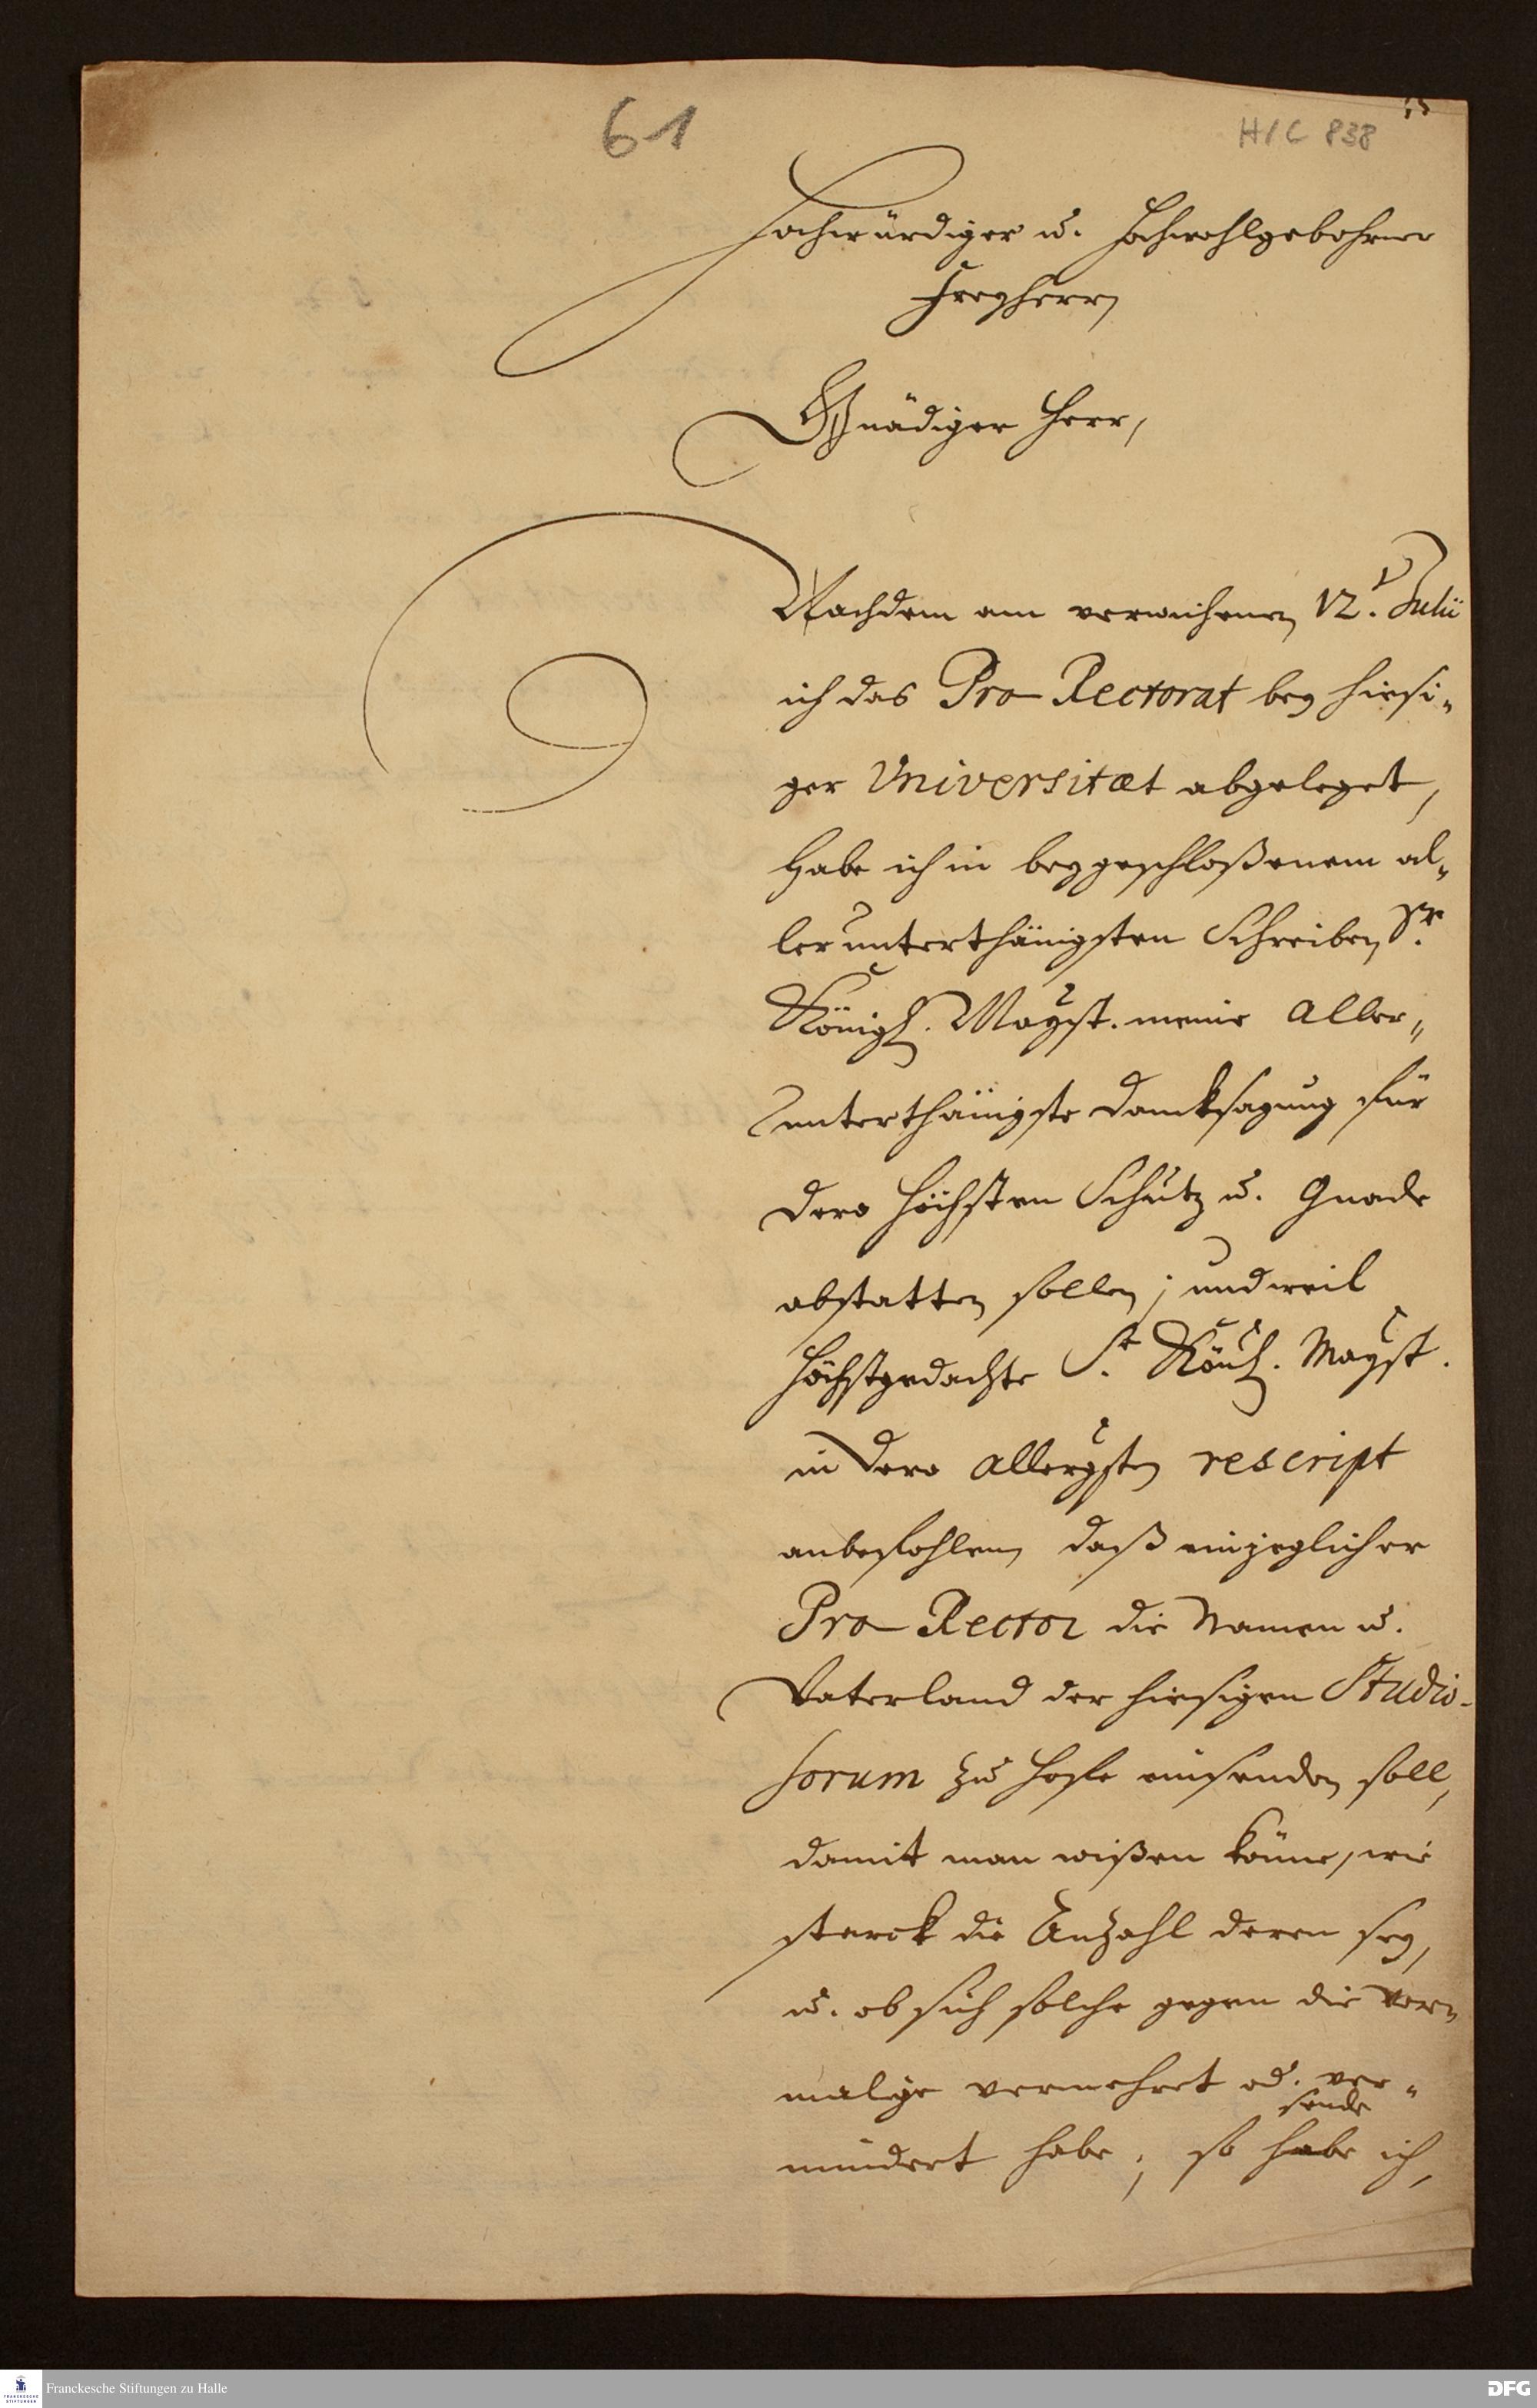 61
H/C 838
Hochwürdiger u. Hochwohlgebohrner
Freyherr
Gnädiger Herr,
Nachdem am verwichenen 12. Julii
ich das Pro-Rectorat bey hiesi-
ger Universitæt abgeleget,
habe ich in beygeschloßenem al-
lerunterthänigsten Schreiben Sr.
Königl. Mayst. meine aller-
unterthänigste Dancksagung für
dero höchsten Schutz u. Gnade
abstatten sollen; und weil
höchstgedachte Se. Könl. Mayst.
in dero allergsten rescript
anbefohlen, daß ein jeglicher
Pro-Rector die Namen u.
Vaterland der hiesigen Studio-
sorum zu Hofe einsenden soll,
damit man wißen könne, wie
starck die Anzahl deren sey,
u. ob sich solche gegen die vor-
malige vermehret od. ver-
sende
mindert habe; so habe ich,
Franckesche Stiftungen zu Halle
DFG